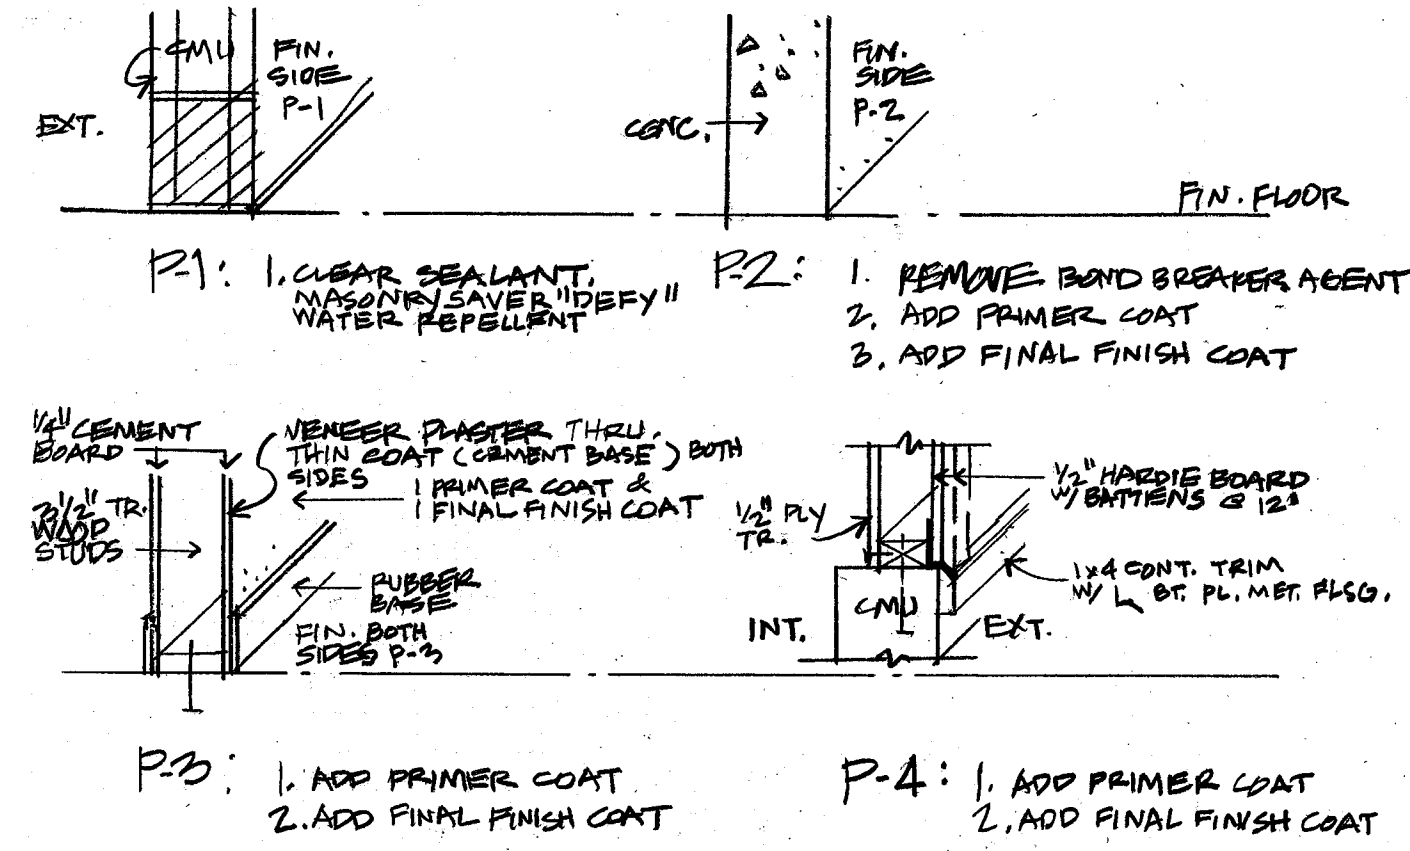 CMU
FIN.
SIDE
P-1
EXT.
FIN.
SIDE
P-2
CONC.
FIN. FLOOR
P-1: 1. CLEAR SEALANT.
MASONRY SAVER "DEFY"
WATER REPELLENT
P-2: 1. REMOVE BOND BREAKER AGENT
2. ADD PRIMER COAT
3. ADD FINAL FINISH COAT
1/4" CEMENT
BOARD
VENEER PLASTER THRU.
THIN COAT (CEMENT BASE) BOTH
SIDES
1 PRIMER COAT &
1 FINAL FINISH COAT
3 1/2" TR.
WOOD
STUDS
RUBBER
BASE
FIN. BOTH
SIDES P-3
1/2" PLY
TR.
1/2" HARDIE BOARD
W/ BATTENS @ 12"
1x4 CONT. TRIM
W/ BT. PL. MET. FLSG.
CMU
INT.
EXT.
P-3: 1. ADD PRIMER COAT
2. ADD FINAL FINISH COAT
P-4: 1. ADD PRIMER COAT
2. ADD FINAL FINISH COAT